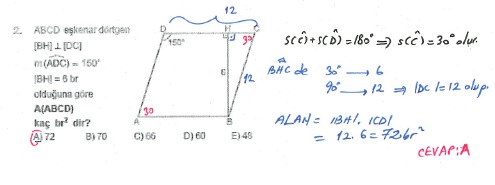 2. ABCD eşkenar dörtgen
[BH] ⊥ [DC]
m(ADC) = 150°
|BH| = 6 br
olduğuna göre
A(ABCD)
kaç br² dir?
A) 72 B) 70 C) 66 D) 60 E) 48
12
D H C
150° 30
6 12
30
A B
s(Ĉ)+s(D̂)=180° ⇒ s(Ĉ)=30° olur.
BHC de 30° → 6
90° → 12 ⇒ |DC|=12 olur.
ALAN = |BH|. |CD|
= 12.6=72br²
CEVAP:A